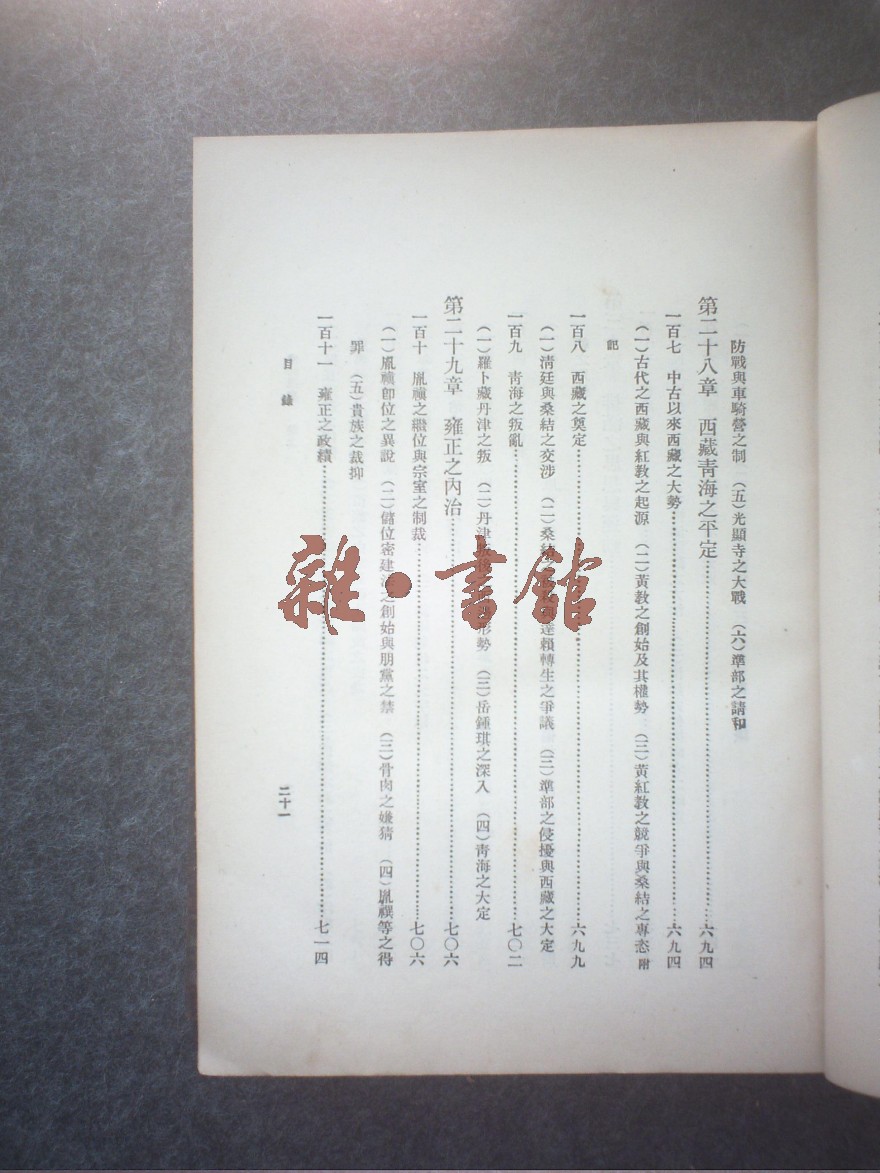 防戰與車騎營之制　（五）光顯寺之大戰　（六）準部之請和
第二十八章　西藏靑海之平定…………六九四
一百七　中古以來西藏之大勢…………六九四
（一）古代之西藏與紅敎之起源　（二）黃敎之創始及其權勢　（三）黃紅敎之競爭與桑結之專恣附
記
一百八　西藏之奠定…………六九九
（一）淸廷與桑結之交涉　（二）桑結之　達賴轉生之爭議　（三）準部之侵擾與西藏之大定
一百九　靑海之叛亂…………七〇二
（一）羅卜藏丹津之叛　（二）丹津　形勢　（三）岳鍾琪之深入　（四）靑海之大定
第二十九章　雍正之內治…………七〇六
一百十　胤禛之繼位與宗室之制裁…………七〇六
（一）胤禛卽位之異說　（二）儲位密建法之創始與朋黨之禁　（三）骨肉之嫌猜　（四）胤禩等之得
罪　（五）貴族之裁抑
一百十一　雍正之政績…………七一四
目錄
二十一
雜·書館